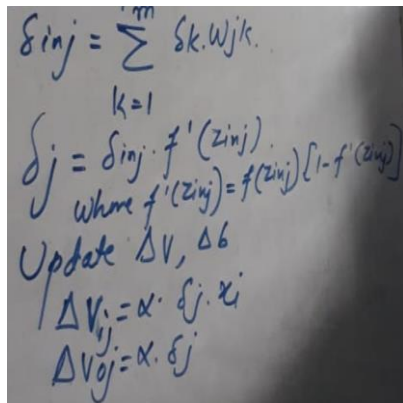 δinj = Σ δk. Wjk.
m
k=1
δj = δinj. f'(zinj).
where f'(zinj) = f(zinj) [1 - f'(zinj)]
Update ΔV, Δb
ΔVij = α. δj. xi
ΔVoj = α. δj